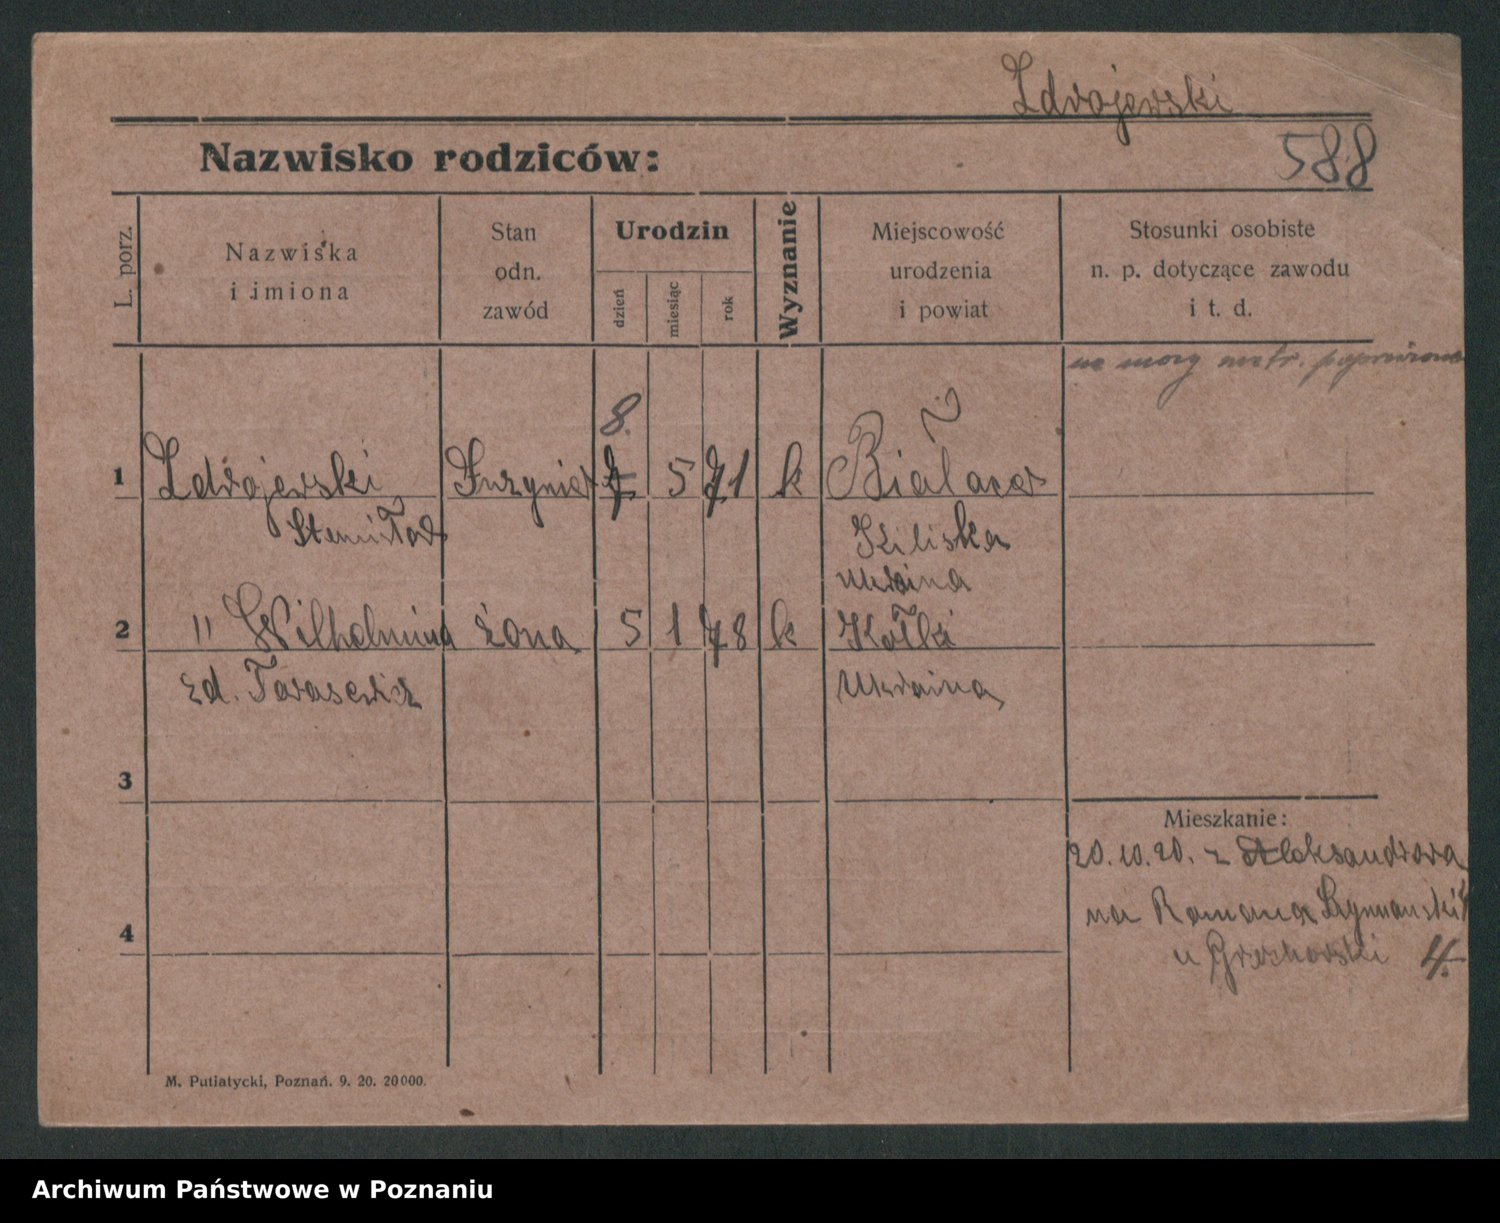 Zdrojewski
Nazwisko rodziców:
588
L. porz.
Nazwiska
i imiona
Stan
odn.
zawód
Urodzin
dzień
miesiąc
rok
Wyznanie
Miejscowość
urodzenia
i powiat
Stosunki osobiste
n. p. dotyczące zawodu
i t. d.
na mocy metr. poprawiono
8.
1 Zdrojewski Inżynier 7 5 71 k
Stanisław
Ukraina
2 " Wilhelmina żona 5 1 78 k Kołki
zd. Tarasewicz Ukraina
3
Mieszkanie:
20.10.20. z Aleksandrowa
na Romana Szymański
4
u 4.
M. Putiatycki, Poznań. 9. 20. 20000.
Archiwum Państwowe w Poznaniu